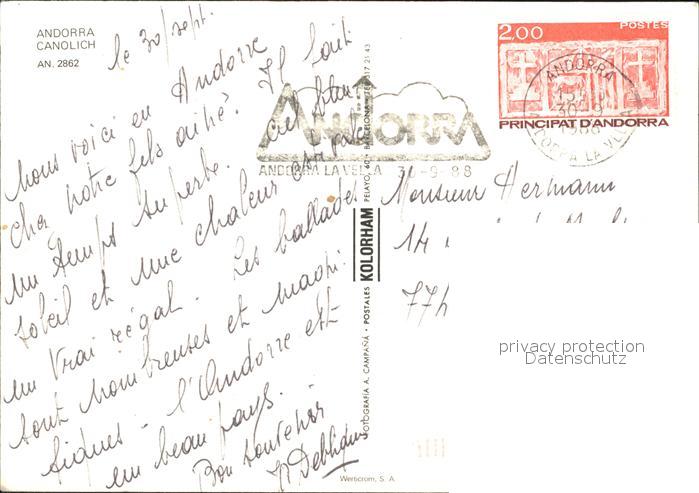 ANDORRA
CANOLICH
AN. 2862
le 30/sept.
Nous voici en Andorre
chez notre fils ainé. Il fait
un temps superbe. ciel bleu
soleil et une chaleur estivale
un vrai régal. Les ballades
sont nombreuses et magni-
fiques - l'Andorre est
un beau pays.
Bon souvenir
ANDORRA
ANDORRA LA VELLA 30-9-88
FOTOGRAFIA A. CAMPAÑA · POSTALES KOLORHAM PELAYO, 60 · BARCELONA · TEL. 317 21 43
Werticrom, S. A.
2,00 POSTES
PRINCIPAT D'ANDORRA
ANDORRA
30-9
1988
ANDORRA LA VELLA
Monsieur Hermann
14
77
privacy protection
Datenschutz